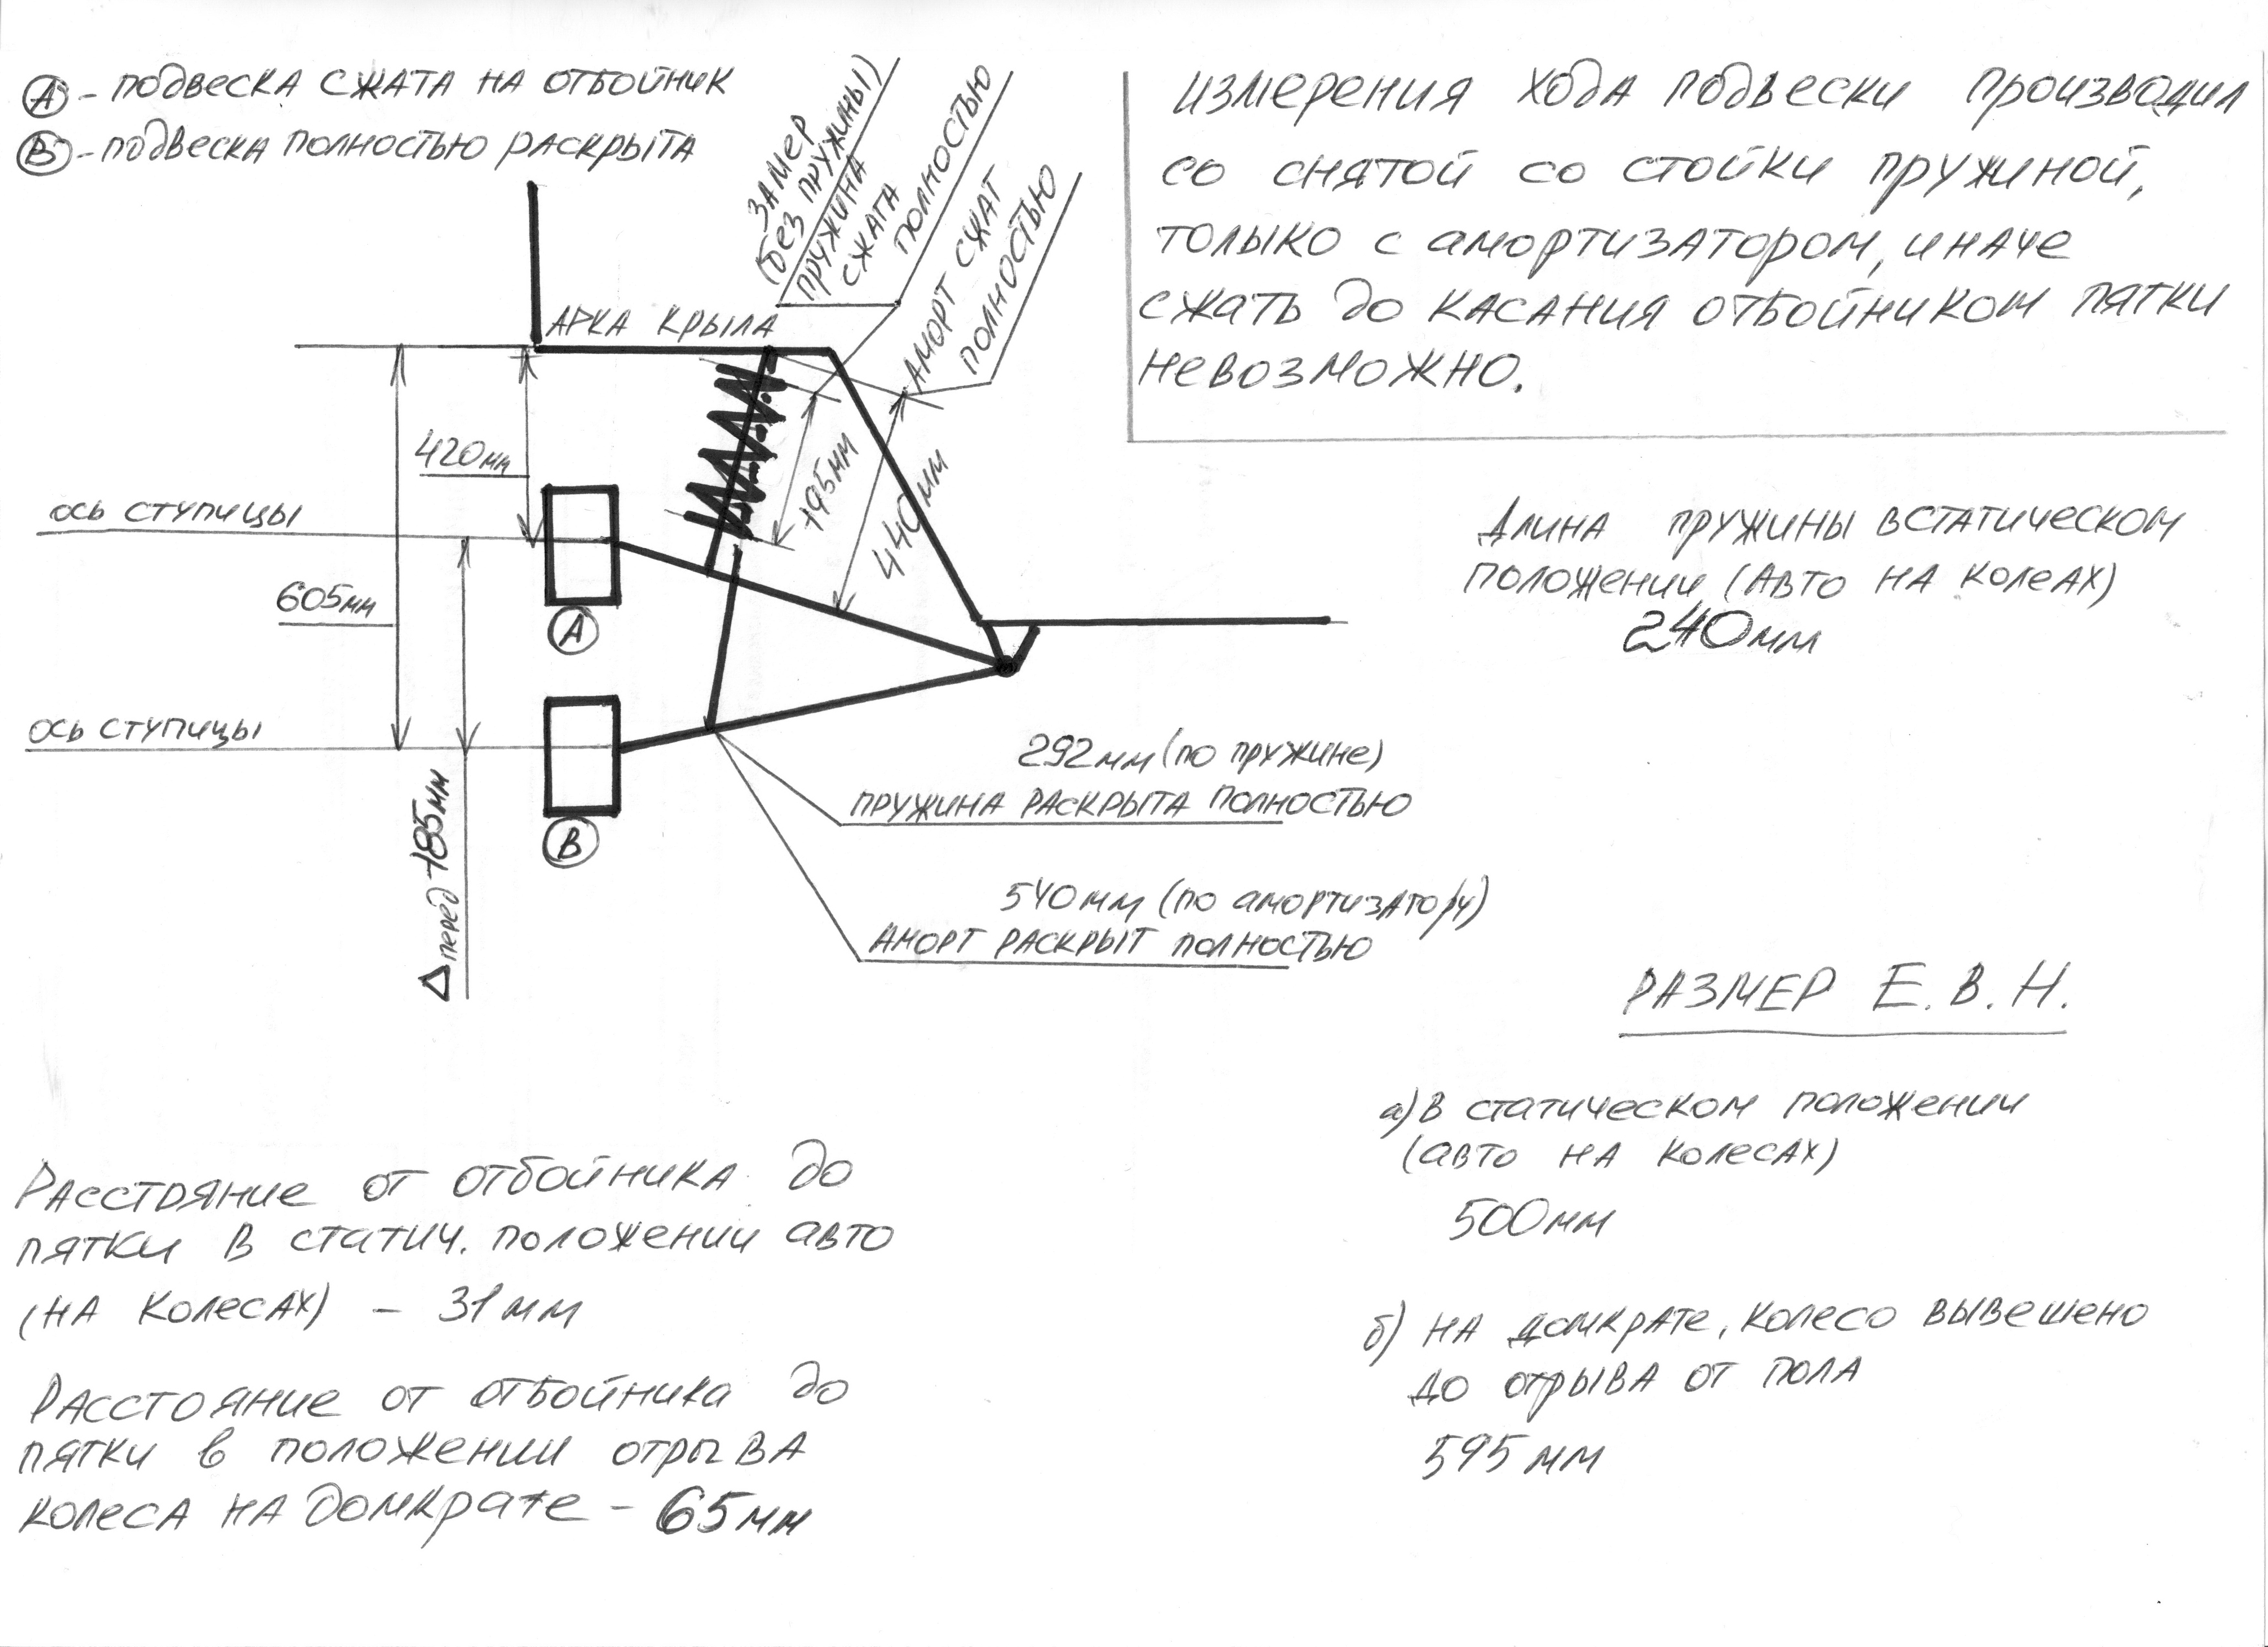 А - подвеска сжата на отбойник
В - подвеска полностью раскрыта
замер
(без пружины)
пружина
сжата
полностью
аморт сжат
полностью
измерения хода подвески производил
со снятой со стойки пружиной,
только с амортизатором, иначе
сжать до касания отбойником пятки
невозможно.
арка крыла
420мм
195мм
440мм
ось ступицы
605мм
А
Длина пружины в статическом
положении (авто на колеах)
240мм
ось ступицы
В
Δ перед 185мм
292мм (по пружине)
пружина раскрыта полностью
540мм (по амортизатору)
аморт раскрыт полностью
Размер Е.В.Н.
а) в статическом положении
(авто на колесах)
500мм
б) на домкрате, колесо вывешено
до отрыва от пола
595мм
Расстояние от отбойника до
пятки в статич. положении авто
(на колесах) - 31мм
Расстояние от отбойника до
пятки в положении отрыва
колеса на домкрате - 65мм